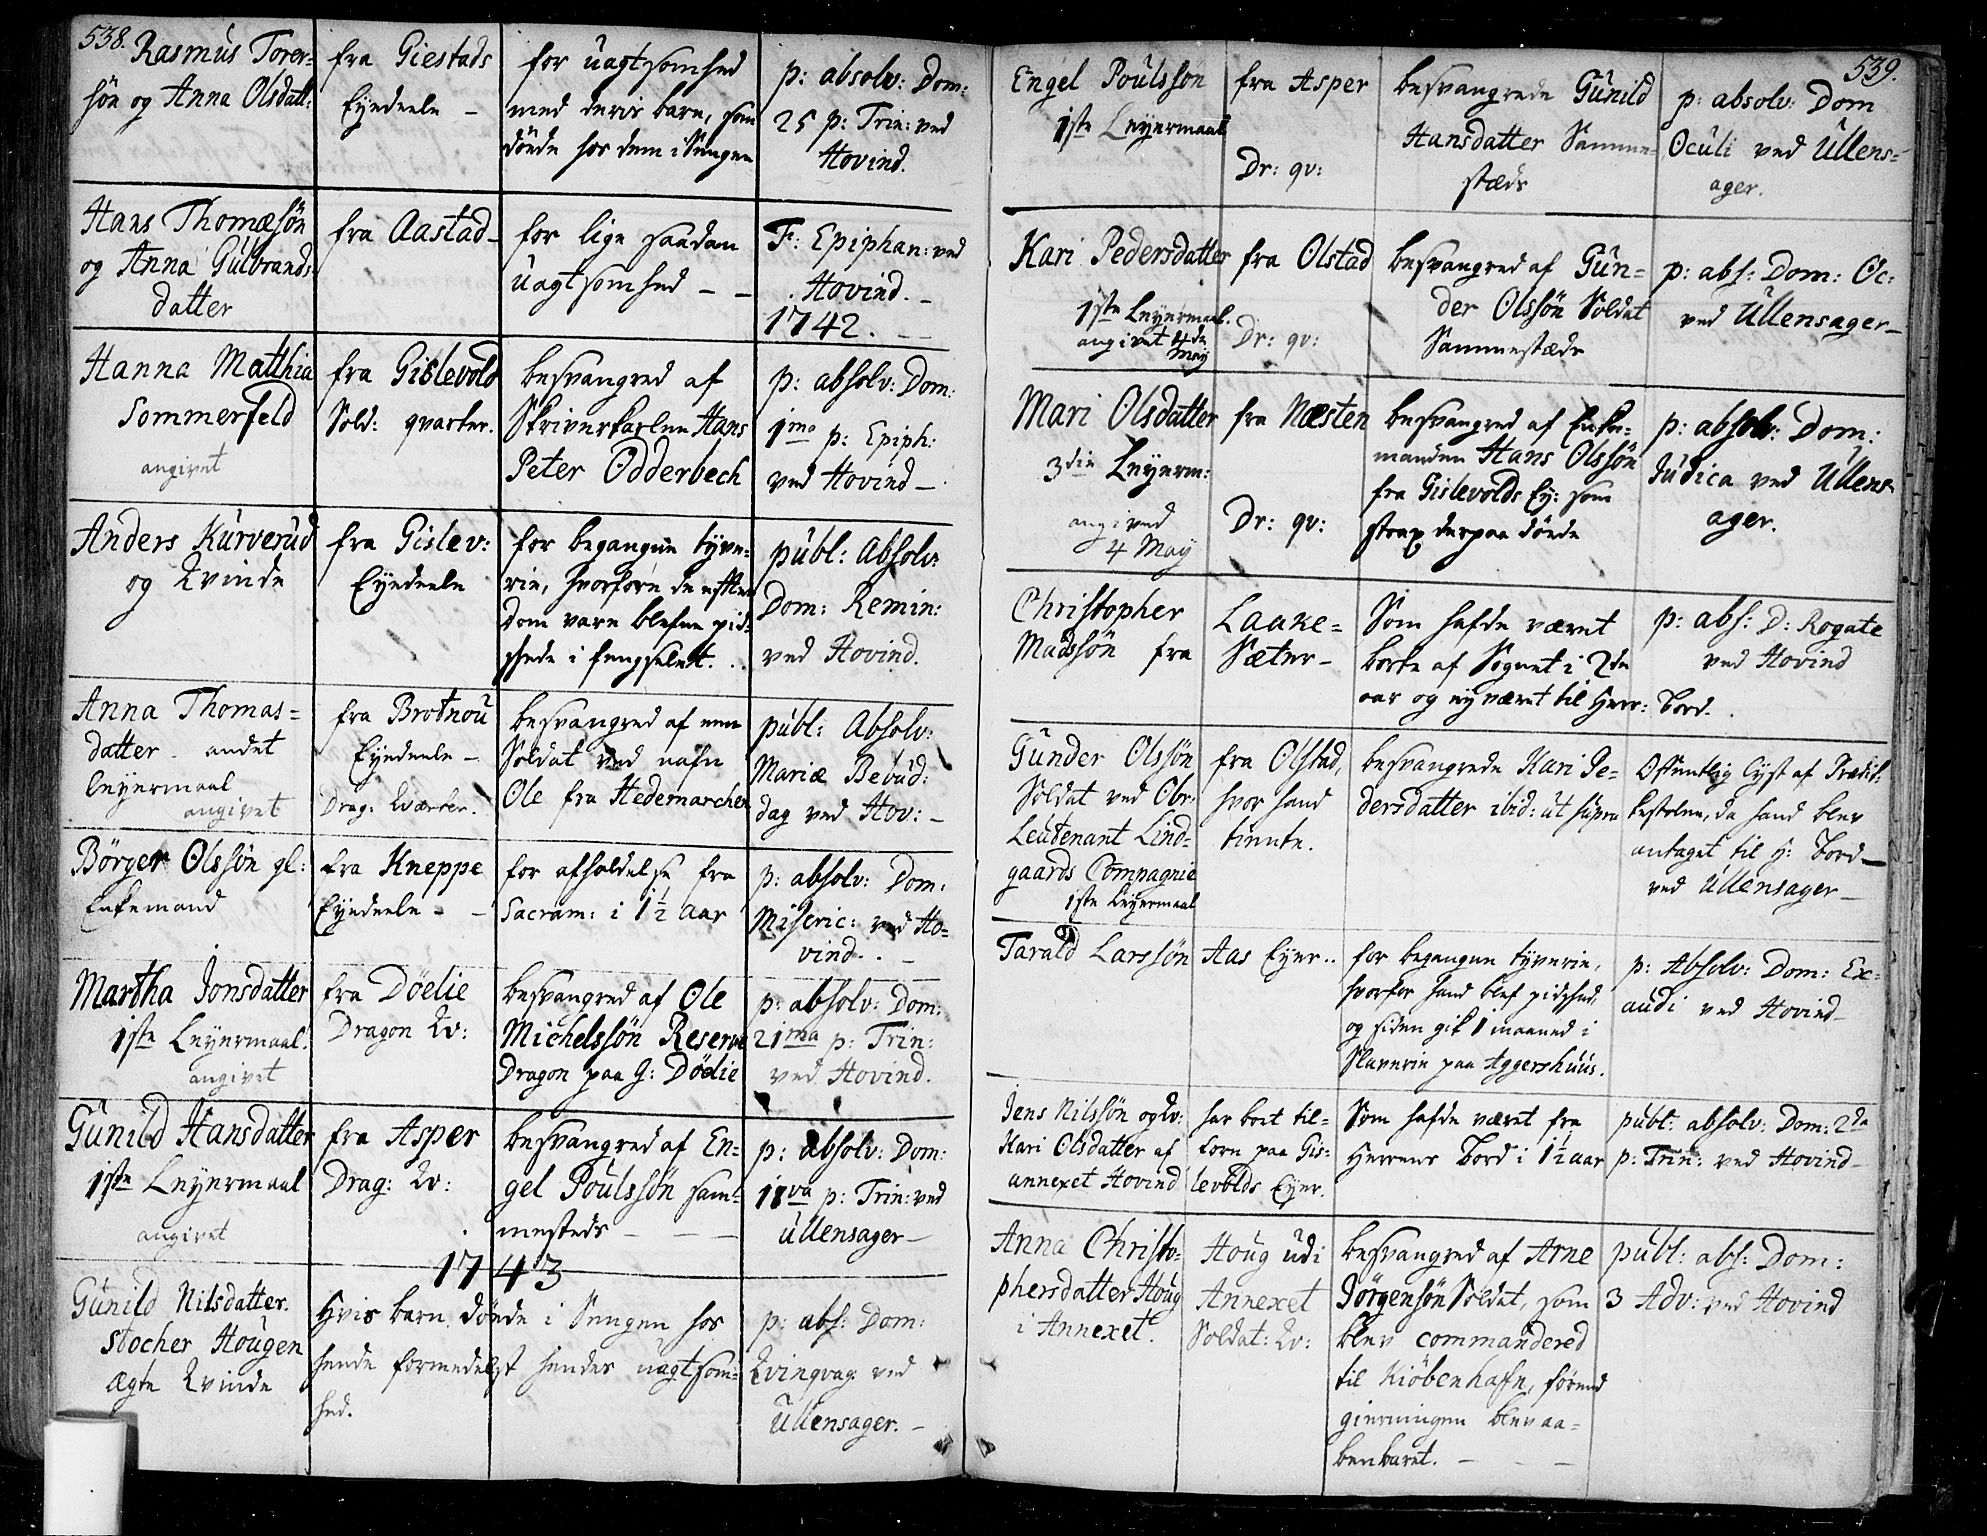 538.
Rasmus Torer=
søn og Anna Olsdatt:
fra Giestads
Eyedeele –
for uagtsomhed
med deris barn, som
døede hos dem i Sengen
p: absolv: Dom:
25 p: Trin: ved
Hovind.
Hans Thomæsøn
og Anna Gulbrands
datter
fra Aastad –
for lige saadan
uagtsomhed – –
F: Epiphan: ved
Hovind. –
1742. – –
Hanna Matthia
Sommerfeld
angivet
fra Gislevold
Sold: qvarter.
besvangred af
Skriverkarlen Hans
Peter Odderbech
p: absolv: Dom:
1mo p: Epiph:
ved Hovind –
Anders Kurverud
og Qvinde
fra Gislev:
Eyedeele
for begangne tyve=
rie, hvorføre de efter
Dom vare blefne pid=
skede i fengselet. . .
publ: Absolv:
Dom: Remin:
ved Hovind.
Anna Thomas=
datter andet
leyermaal
angivet
fra Brotnou
Eyedeele –
Drag: Qvarter.
besvangred af een
Soldat ved nafn
Ole fra Hedemarchen
publ: Absolv:
Mariæ Bebud:
dag ved Hov: –
Børger Olssøn gl:
Enkemand
fra Kneppe
Eyedeele – –
for afholdelse fra
Sacram: i 1½ Aar
p: absolv: Dom:
Miseric: ved Ho=
vind. . –
Martha Jonsdatter
1ste Leyermaal.
angivet
fra Døelie
Dragon Qv:
besvangred af Ole
Michelssøn Reserve
Dragon paa G: Dødlie
p: absolv: Dom:
21ma p: Trin:
ved Hovind.
Gunild Hansdatter
1ste Leyermaal
angivet
fra Asper
Drag: Qv:
besvangred af En=
gel Poulssøn sam=
mesteds – – –
p: absolv: Dom:
18va p: Trin: ved
Ullensager –
1743
Gunild Nilsdatter.
Stocher Hougen
ægte Qvinde
Hvis barn døede i Sengen hos
hende formedelst hendes uagtsom=
hed.
p: abs: Dom:
Qvinqvag ved
Ullensager. –
539.
Engel Poulssøn
1ste Leyermaal
fra Asper
Dr: qv:
besvangrede Gunild
Hansdatter Samme=
stæds
p: absolv: Dom
Oculi ved Ullens=
ager.
Kari Pedersdatter
1ste Leyermaal.
angivet 4de
May
fra Olstad
Dr: qv:
besvangred af Gun=
der Olssøn Soldat
Sammestæds
p: abs: Dom: Oc:
ved Ullensager –
Mari Olsdatter
3die Leyerm:
angived
4 May
fra Næsten
Dr: qv:
besvangred af Enke=
manden Hans Olssøn
fra Gislevolds Ey: som
strax derpaa døede
p: absolv: Dom:
Judica ved Ullens
ager.
Christopher
Madssøn fra
Laake=
Sæter –
Som hafde været
borte af Sognet i 2de
aar og ey været til Herr: bord.
p: abs: D: Rogate
ved Hovind
Gunder Olssøn
Soldat ved Obr:
Leutenant Lind=
gaards Compagnie
1ste Leyermaal
fra Olstad,
hvor hand
tiente.
besvangrede Kari Pe=
dersdatter ibid: ut supra
Offentlig lyst af Prædik=
kestolen, da hand blev
antaget til H: bord –
ved Ullensager –
Tarald Larssøn
Aas Eyer..
for begangen tyverie,
hvorfor hand blef pidsked,
og siden gik 1 maaned i
Slaverie paa Aggershuus.
p: Absolv: Dom: Ex=
audi ved Hovind –
Jens Nilssøn og Qv:
Kari Olsdatter af
annexet Hovind
har boet til=
forn paa Gis=
levolds Eyer.
Som hafde været fra
Herrens bord i 1½ aar
publ: absolv: Dom: 2da
p: Trin: ved Hovind –
Anna Christo=
phersdatter Houg
i Annexet.
Houg udi
Annexet
Soldat: Qv:
besvangred af Arne
Jørgensøn Soldat, som
blev commandered
til Kiøbenhafn, førend
gierningen blev aa=
benbaret. – – –
publ: abs: Dom:
3 Adv: ved Hovind